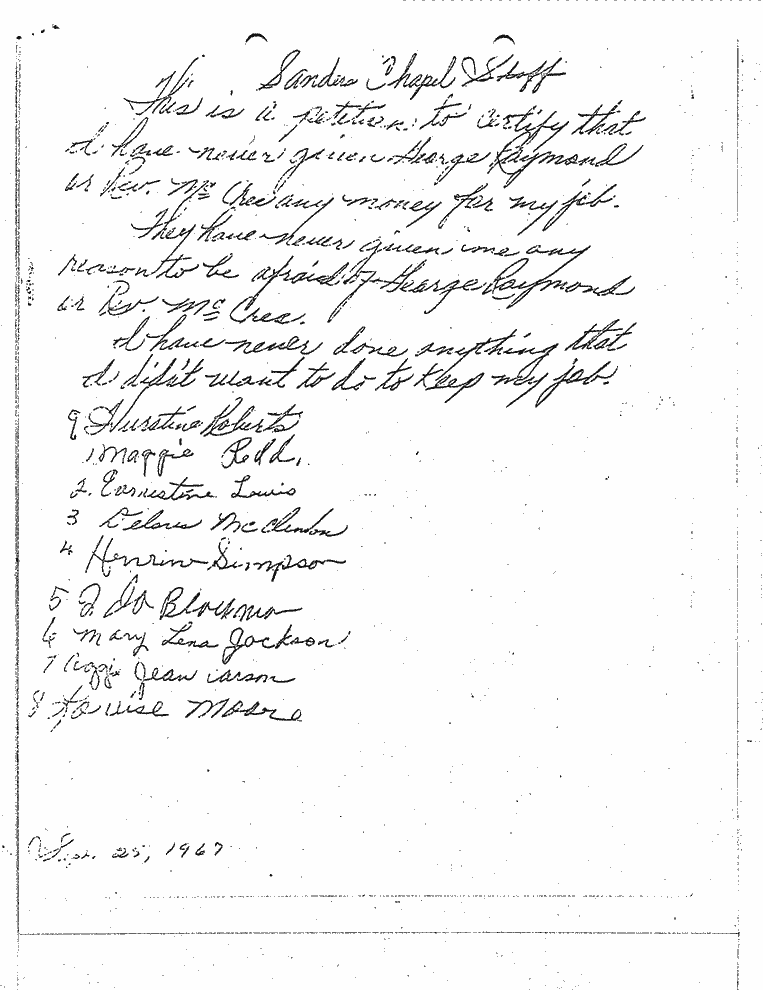 Sanders Chapel Staff
This is a petition to certify that
I have never given George Raymond
or Rev. McCree any money for my job.
They have never given me any
reason to be afraid of George Raymond
or Rev. McCree.
I have never done anything that
I didn't want to do to keep my job.
9 Roberts
1 Maggie Redd.
2. Earnestine Lewis
3 Delores McClendon
4 Simpson
5
6 Mary Lena Jackson
7 Jean Carson
8 Louise Moore
Sept. 25, 1967